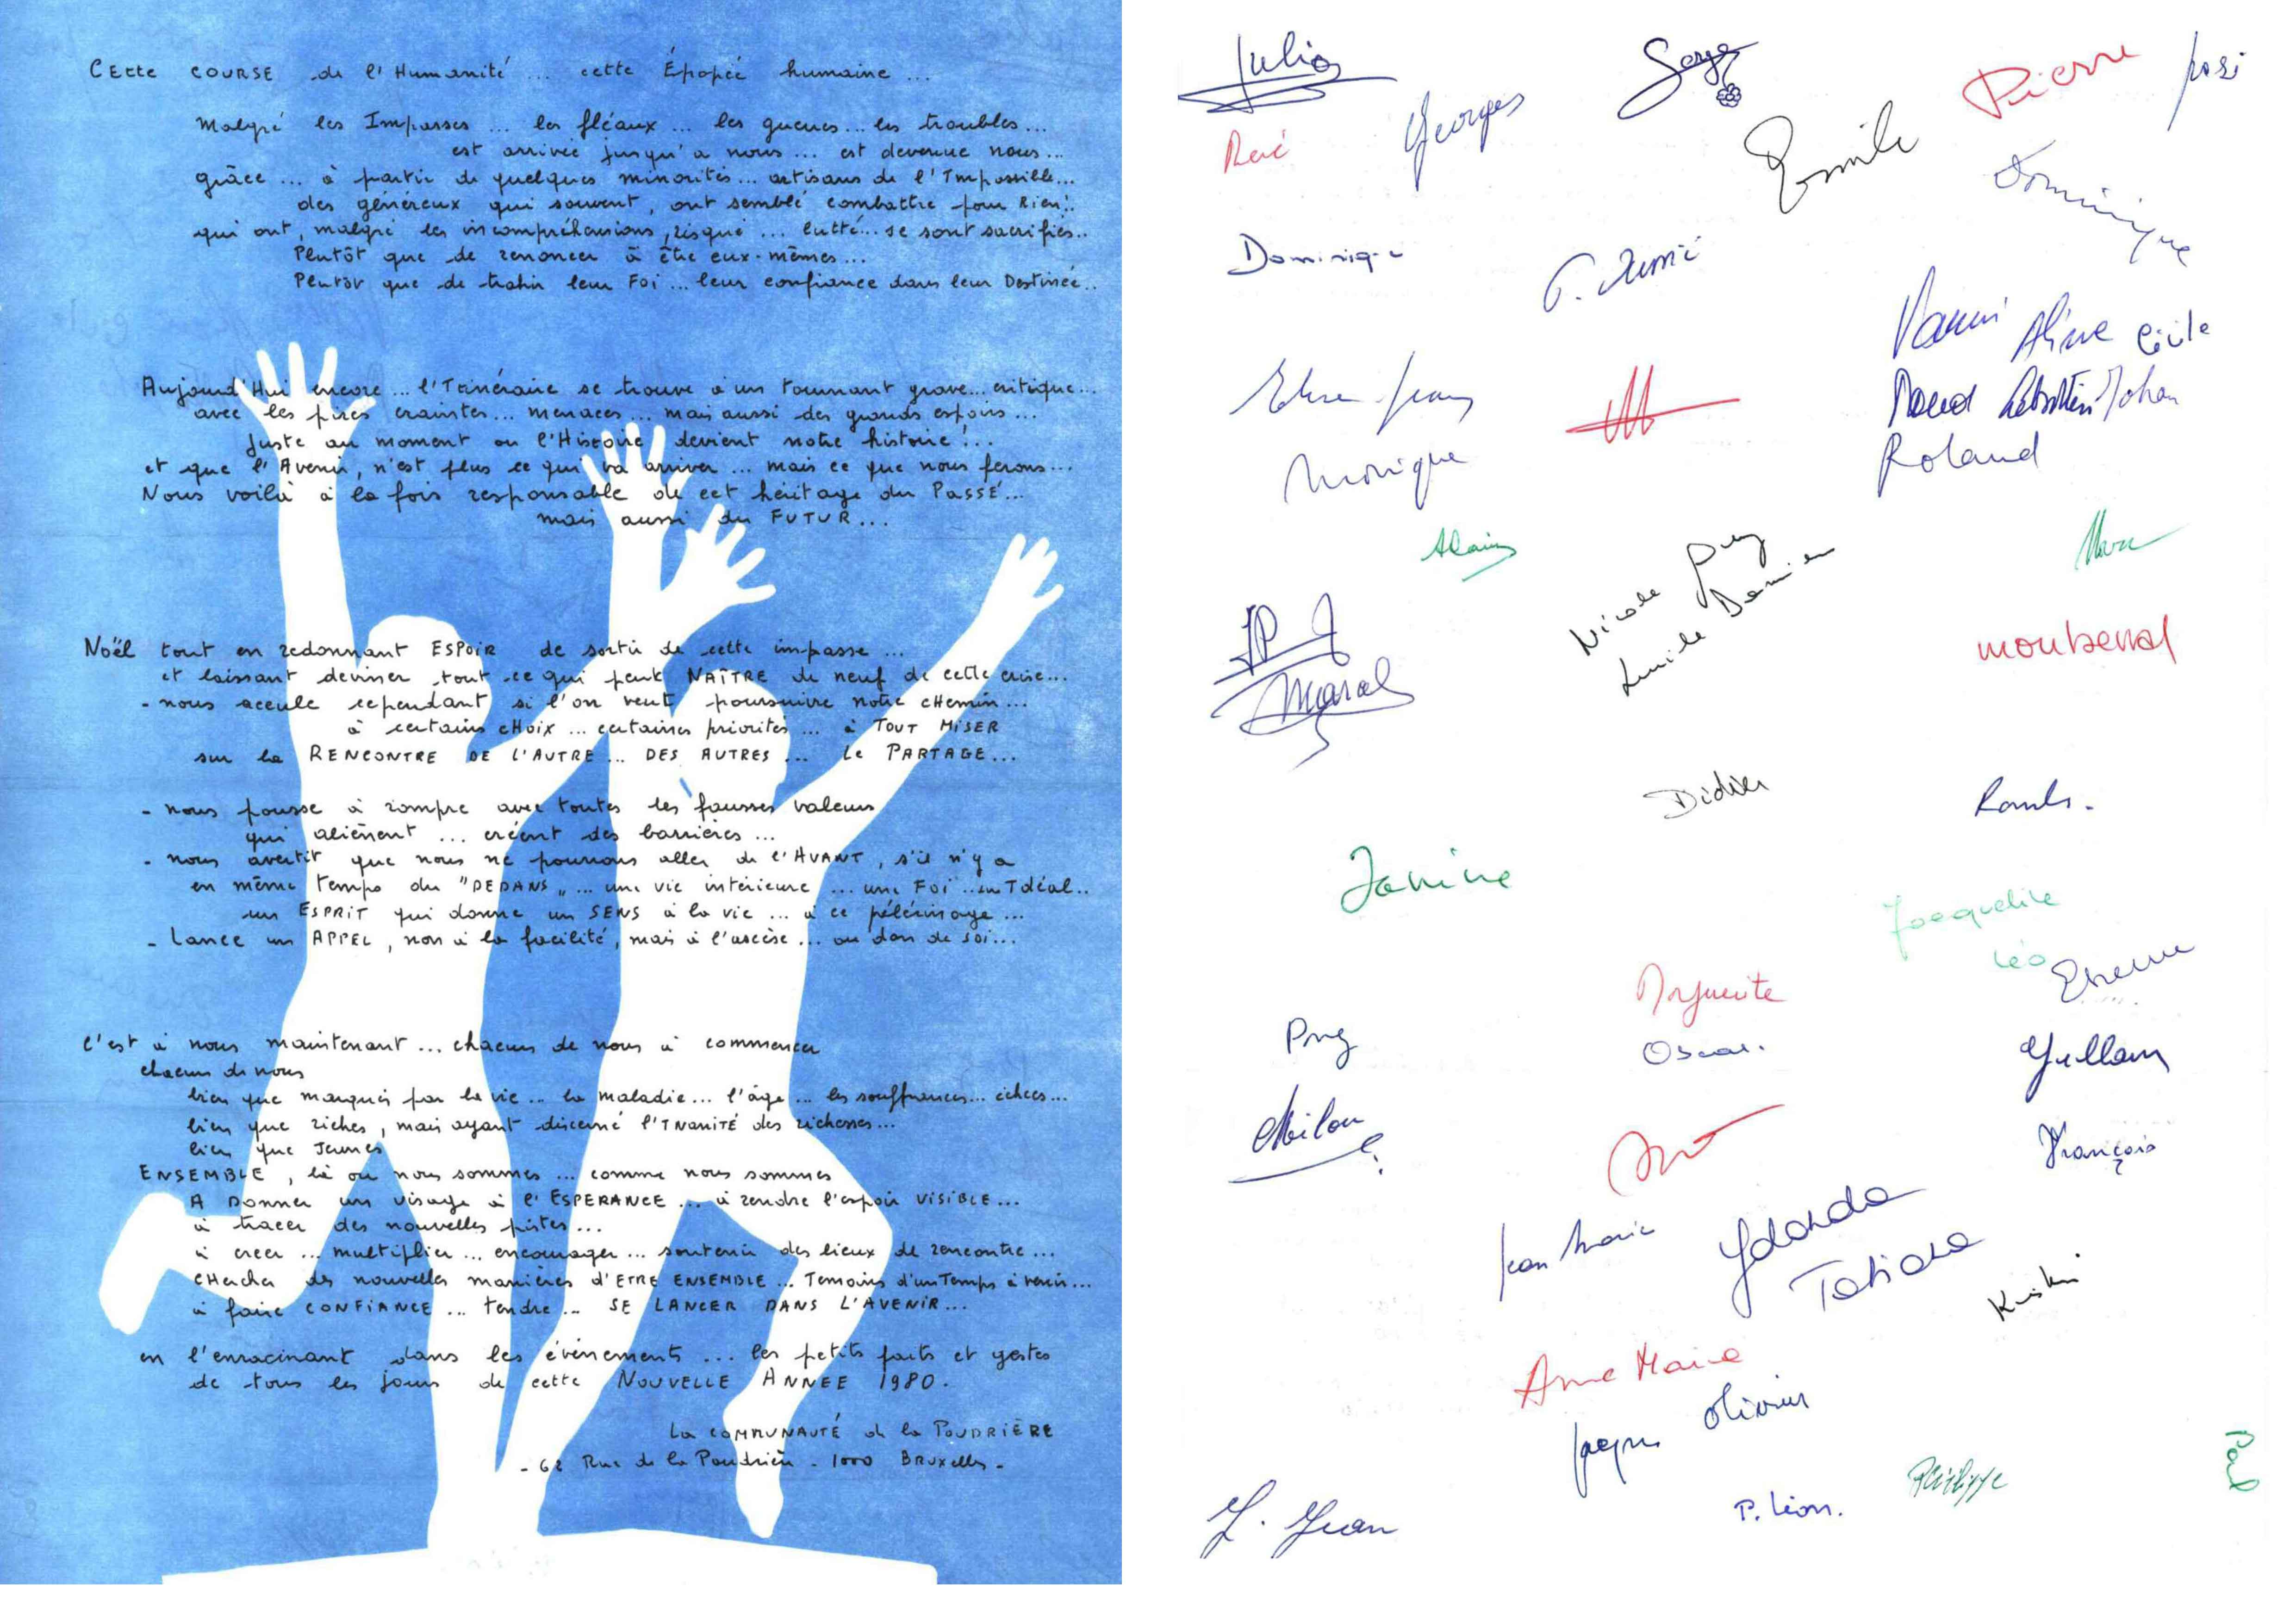 Cette COURSE de l'Humanité ... cette Épopée humaine ...
Malgré les Impasses ... les fléaux ... les guerres ... les troubles ...
est arrivée jusqu'a nous ... est devenue nous ...
grâce ... à partir de quelques minorités ... artisans de l'Impossible ...
des généreux qui souvent, ont semblé combattre pour Rien!.
qui ont, malgré les incompréhensions, risqué ... lutté ... se sont sacrifiés ..
Plutôt que de renoncer à être eux-mêmes ...
Plutôt que de trahir leur Foi ... leur confiance dans leur Destinée ..
Aujourd'Hui encore ... l'Itinéraire se trouve à un tournant grave ... critique ...
avec les pires craintes ... menaces ... mais aussi des grands espoirs ...
Juste au moment ou l'Histoire devient notre histoire! ..
et que l'Avenir, n'est plus ce qui va arriver ... mais ce que nous ferons ...
Nous voilà à la fois responsable de cet héritage du PASSÉ ...
mais aussi du FUTUR ...
Noël tout en redonnant ESPOIR de sortir de cette impasse ...
et laissant deviner tout ce qui peut NAÎTRE de neuf de cette crise ...
- nous accule cependant si l'on veut poursuivre notre cHemin ...
à certains cHoix ... certaines priorités ... à TOUT MISER
sur la RENCONTRE DE L'AUTRE ... DES AUTRES ... Le PARTAGE ...
- nous pousse à rompre avec toutes les fausses valeurs
qui aliènent ... créent des barrières ...
- nous avertit que nous ne pourrons aller de l'AVANT, s'il n'y a
en même temps du "DEDANS" ... une vie intérieure ... une Foi .. un Idéal ..
un ESPRIT qui donne un SENS à la vie ... à ce pélérinage ...
- Lance un APPEL, non à la facilité, mais à l'ascèse ... au don de soi ...
C'est à nous maintenant ... chacun de nous à commencer
chacun de nous
bien que marqués par la vie .. la maladie ... l'âge ... les souffrances ... échecs ...
bien que riches, mais ayant discerné l'INANITÉ des richesses ...
bien que Jeunes
ENSEMBLE, là ou nous sommes ... comme nous sommes
A Donner un visage à l'ESPERANCE ... à rendre l'espoir VISIBLE ...
à tracer des nouvelles pistes ...
à creer ... multiplier ... encourager ... soutenir des lieux de rencontre ...
cHercher des nouvelles manières d'ETRE ENSEMBLE ... Temoins d'un Temps à venir ...
à faire CONFIANCE ... tendre ... SE LANCER DANS L'AVENIR ...
en l'enracinant dans les évènements ... les petits faits et gestes
de tous les jours de cette NOUVELLE ANNEE 1980.
La COMMUNAUTÉ de la POUDRIÈRE
- 62 Rue de la Poudrière - 1000 Bruxelles -
Julio
Serge
Pierre
José
René
Georges
Emile
Dominique
Dominique
Aline
Cécile
Johan
Monique
Roland
Alain
Nicole Puy
Lucile Damien
Marc
JP
Marcel
Montserrat
Didier
Janine
Jacqueline
Léo
Etienne
Marguerite
Puy
Oscar.
Milou
François
Jean Marie
Yolanda
Tatiana
Anne Marie
Olivier
Jacques
Philippe
Paul
P. Léon.